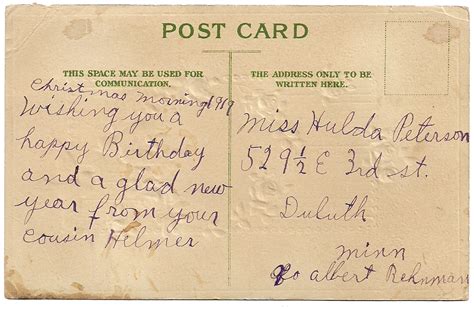 POST CARD
THIS SPACE MAY BE USED FOR
COMMUNICATION.
Christmas morning 1919
Wishing you a
happy Birthday
and a glad new
year from your
cousin Helmer
THE ADDRESS ONLY TO BE
WRITTEN HERE.
Miss Hulda Peterson
529½ E 3rd st.
Duluth
Minn
℅ albert Rehnman